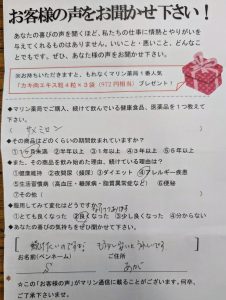 お客様の声をお聞かせ下さい!
あなたの喜びの声を聞くほど、私たちの仕事に情熱とやりがいを
与えてくれるものはありません。いいこと・悪いこと、どんなこ
とでもです。ぜひ、あなた様の声をお聞かせ下さい。
※お待ちいただきますと、もれなくマリン薬局1番人気
「カキ肉エキス粒4粒×3袋(972円相当)プレゼント!
◆マリン薬局でご購入、続けて飲んでいる健康食品、医薬品を1つ教えて
下さい。
◆その商品はどのくらいの期間飲まれていますか?
①1ヶ月未満 ②半年以上 ③1年以上 ④3年以上 ⑤5年以上
◆また、その商品を飲み始めた理由、続けている理由は?
①健康維持 ②疲労(頭痛) ③ダイエット ④アレルギー疾患
⑤生活習慣病(高血圧・糖尿病・脂質異常症など) ⑥便秘
⑦その他(
◆服用してみて変化はどうですか?
①とても良くなった ②良くなった ③少し良くなった ④分からない
◆あなたの喜びの気持ちをぜひお聞かせ下さい。
続けたいのですが、もう少し安いとうれしいです
お名前(ペンネーム) ご住所
◎この「お客様の声」がマリン通信に載ることがございます。何卒、
ご了承下さいませ。